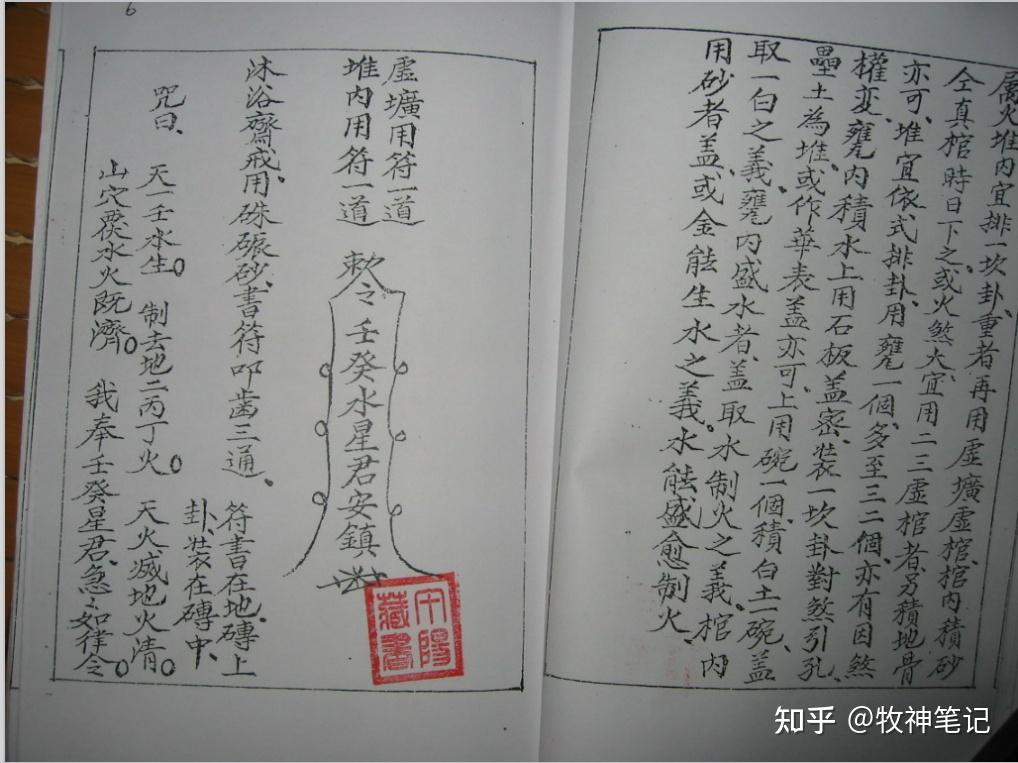 屬火堆內宜排一坎卦、重者再用虛壙虛棺、棺內積砂
仝真棺時日下之、或火煞大、宜用二三虛棺者、另積地骨
亦可、堆宜依式排卦、用甕一個、多至三二個、亦有因煞
權变、甕內積水上用石板盖密、裝一坎卦對煞引孔、
壘土為堆、或作華表盖亦可、上用碗一個、積白土一碗、盖
取一白之義、甕內盛水者、盖取水制火之義、棺內
用砂者盖、或金能生水之義。水能盛愈制火、
6
虛壙用符一道
堆內用符一道
敕令壬癸水星君安鎮
沐浴齋戒、用硃碾砂、書符叩齒三通、
符書在地磚上
卦、裝在磚中、
咒曰、
天一壬水生。 制去地二丙丁火。 天火滅地火清。
山穴發水火既濟。 我奉壬癸星君、急々如律令。
知乎 @牧神笔记